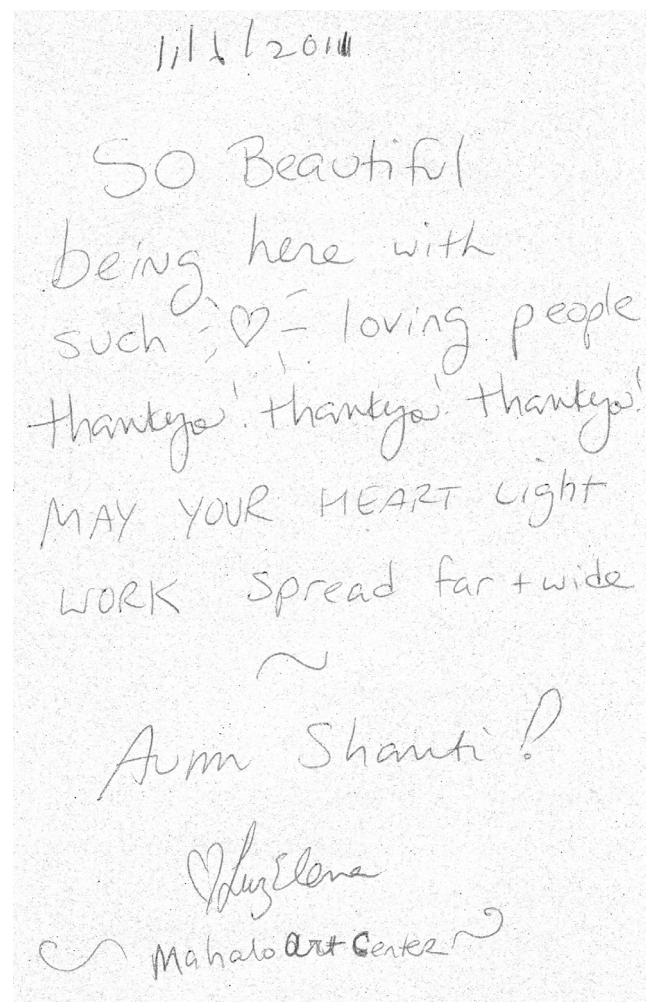 11/1/2011
So Beautiful
being here with
such ♡ loving people
thankyo! thankyo! thankyo!
MAY YOUR HEART Light
WORK spread far + wide
~
Aumn Shanti!
♡ Luz Elena
Mahalo Art Center